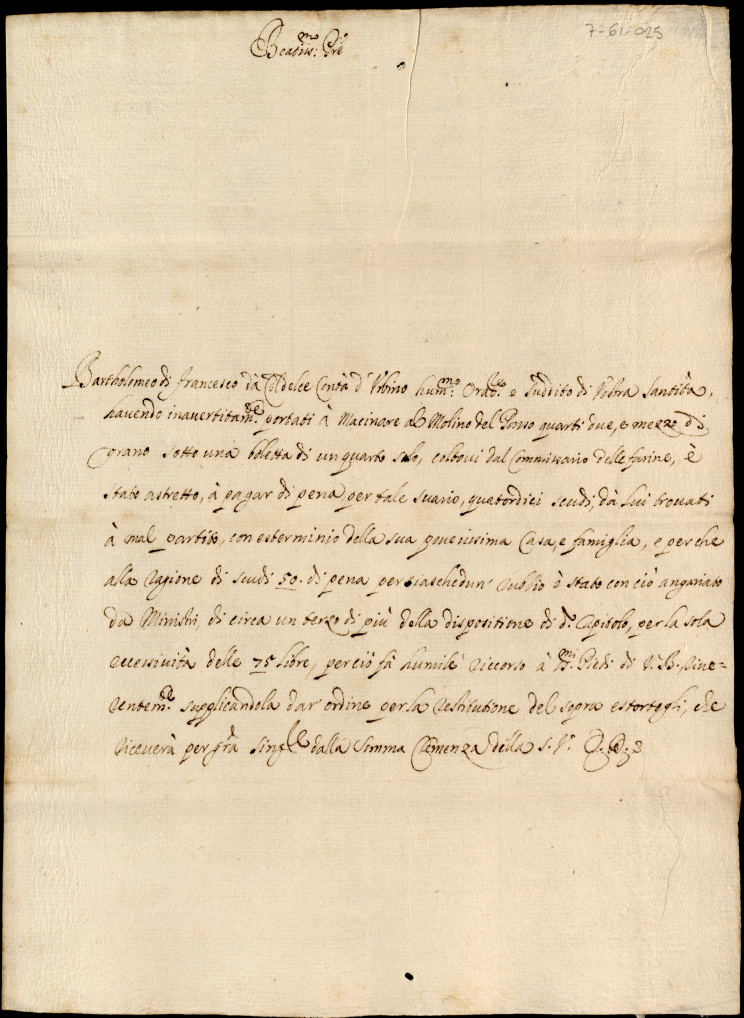 7-61-025
Beatiss:mo Pre
Bartholomeo di Francesco da Coldelce Contà d'Urbino hum:mo Orat.re e Suddito di Vostra Santità,
havendo inavertitam:te portati à Macinare al Molino del Passo quarti due, e mezzo di
grano sotto una boletta di un quarto solo, coltovi dal Commissario delle farine, è
stato astretto, à pagar di pena per tale suario, quatordici scudi, da lui trovati
à mal partito, con esterminio della sua poverissima Casa, e famiglia, e perche
alla ragione di scudi 50. di pena per ciaschedun' rubbio è stato con ciò angariato
da Ministri, di circa un terzo di più della dispositione di d.o Capitolo, per la sola
eccessività delle 75 libre, perciò fà humile riccorso à SS.mi Piedi di V. B. Rive=
rentem:te supplicandola dar ordine per la restitutione del sopra estortogli, che
riceverà per gra sing.le dalla Somma Clemenza della S. V.